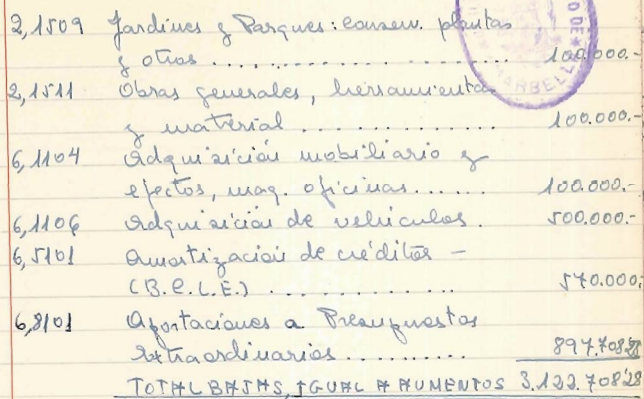 2,1509 Jardines y Parques: conserv. plantas
y otros ........................ 100.000.-
2,1511 Obras generales, herramientas
y material ............... 100.000.-
6,1104 Adquisición mobiliario y
efectos, maq. oficinas...... 100.000.-
6,1106 Adquisición de vehículos. 500.000.-
6,5101 Amortización de créditos -
(B.C.L.E.) .............. 570.000.-
6,8101 Aportaciones a Presupuestos
extraordinarios.......... 897.708'28
TOTAL BAJAS, IGUAL A AUMENTOS 3.122.708'28
O DE
MARBELL